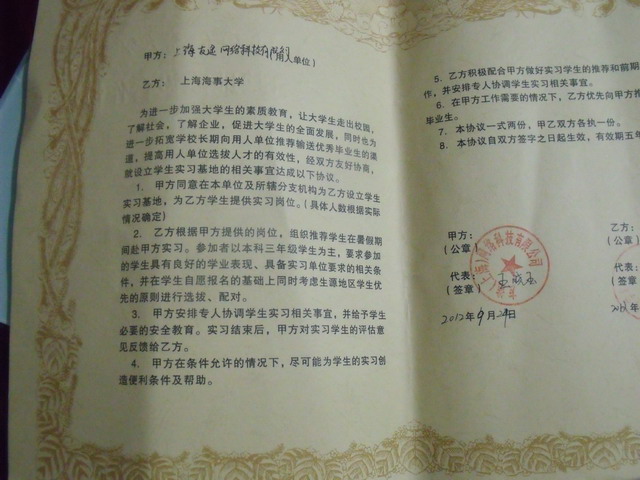 甲方：上海友连网络科技有限公司（用人单位）
乙方：上海海事大学
为进一步加强大学生的素质教育，让大学生走出校园，
了解社会，了解企业，促进大学生的全面发展，同时也为
进一步拓宽学校长期向用人单位推荐输送优秀毕业生的渠
道，提高用人单位选拔人才的有效性，经双方友好协商，
就设立学生实习基地的相关事宜达成以下协议。
1. 甲方同意在本单位及所辖分支机构为乙方设立学生
实习基地，为乙方学生提供实习岗位。（具体人数根据实际
情况确定）
2. 乙方根据甲方提供的岗位，组织推荐学生在暑假期
间赴甲方实习。参加者以本科三年级学生为主，要求参加
的学生具有良好的学业表现、具备实习单位要求的相关条
件，并在学生自愿报名的基础上同时考虑生源地区学生优
先的原则进行选拔、配对。
3. 甲方安排专人协调学生实习相关事宜，并给予学生
必要的安全教育。实习结束后，甲方对实习学生的评估意
见反馈给乙方。
4. 甲方在条件允许的情况下，尽可能为学生的实习创
造便利条件及帮助。
5. 乙方积极配合甲方做好实习学生的推荐和前期
作，并安排专人协调学生实习相关事宜。
6. 在甲方工作需要的情况下，乙方优先向甲方推
毕业生。
7. 本协议一式两份，甲乙双方各执一份。
8. 本协议自双方签字之日起生效，有效期五年
甲方：
（公章）
代表：
（签章）
2012年9月29日
乙方：
（公章
代表
（签章